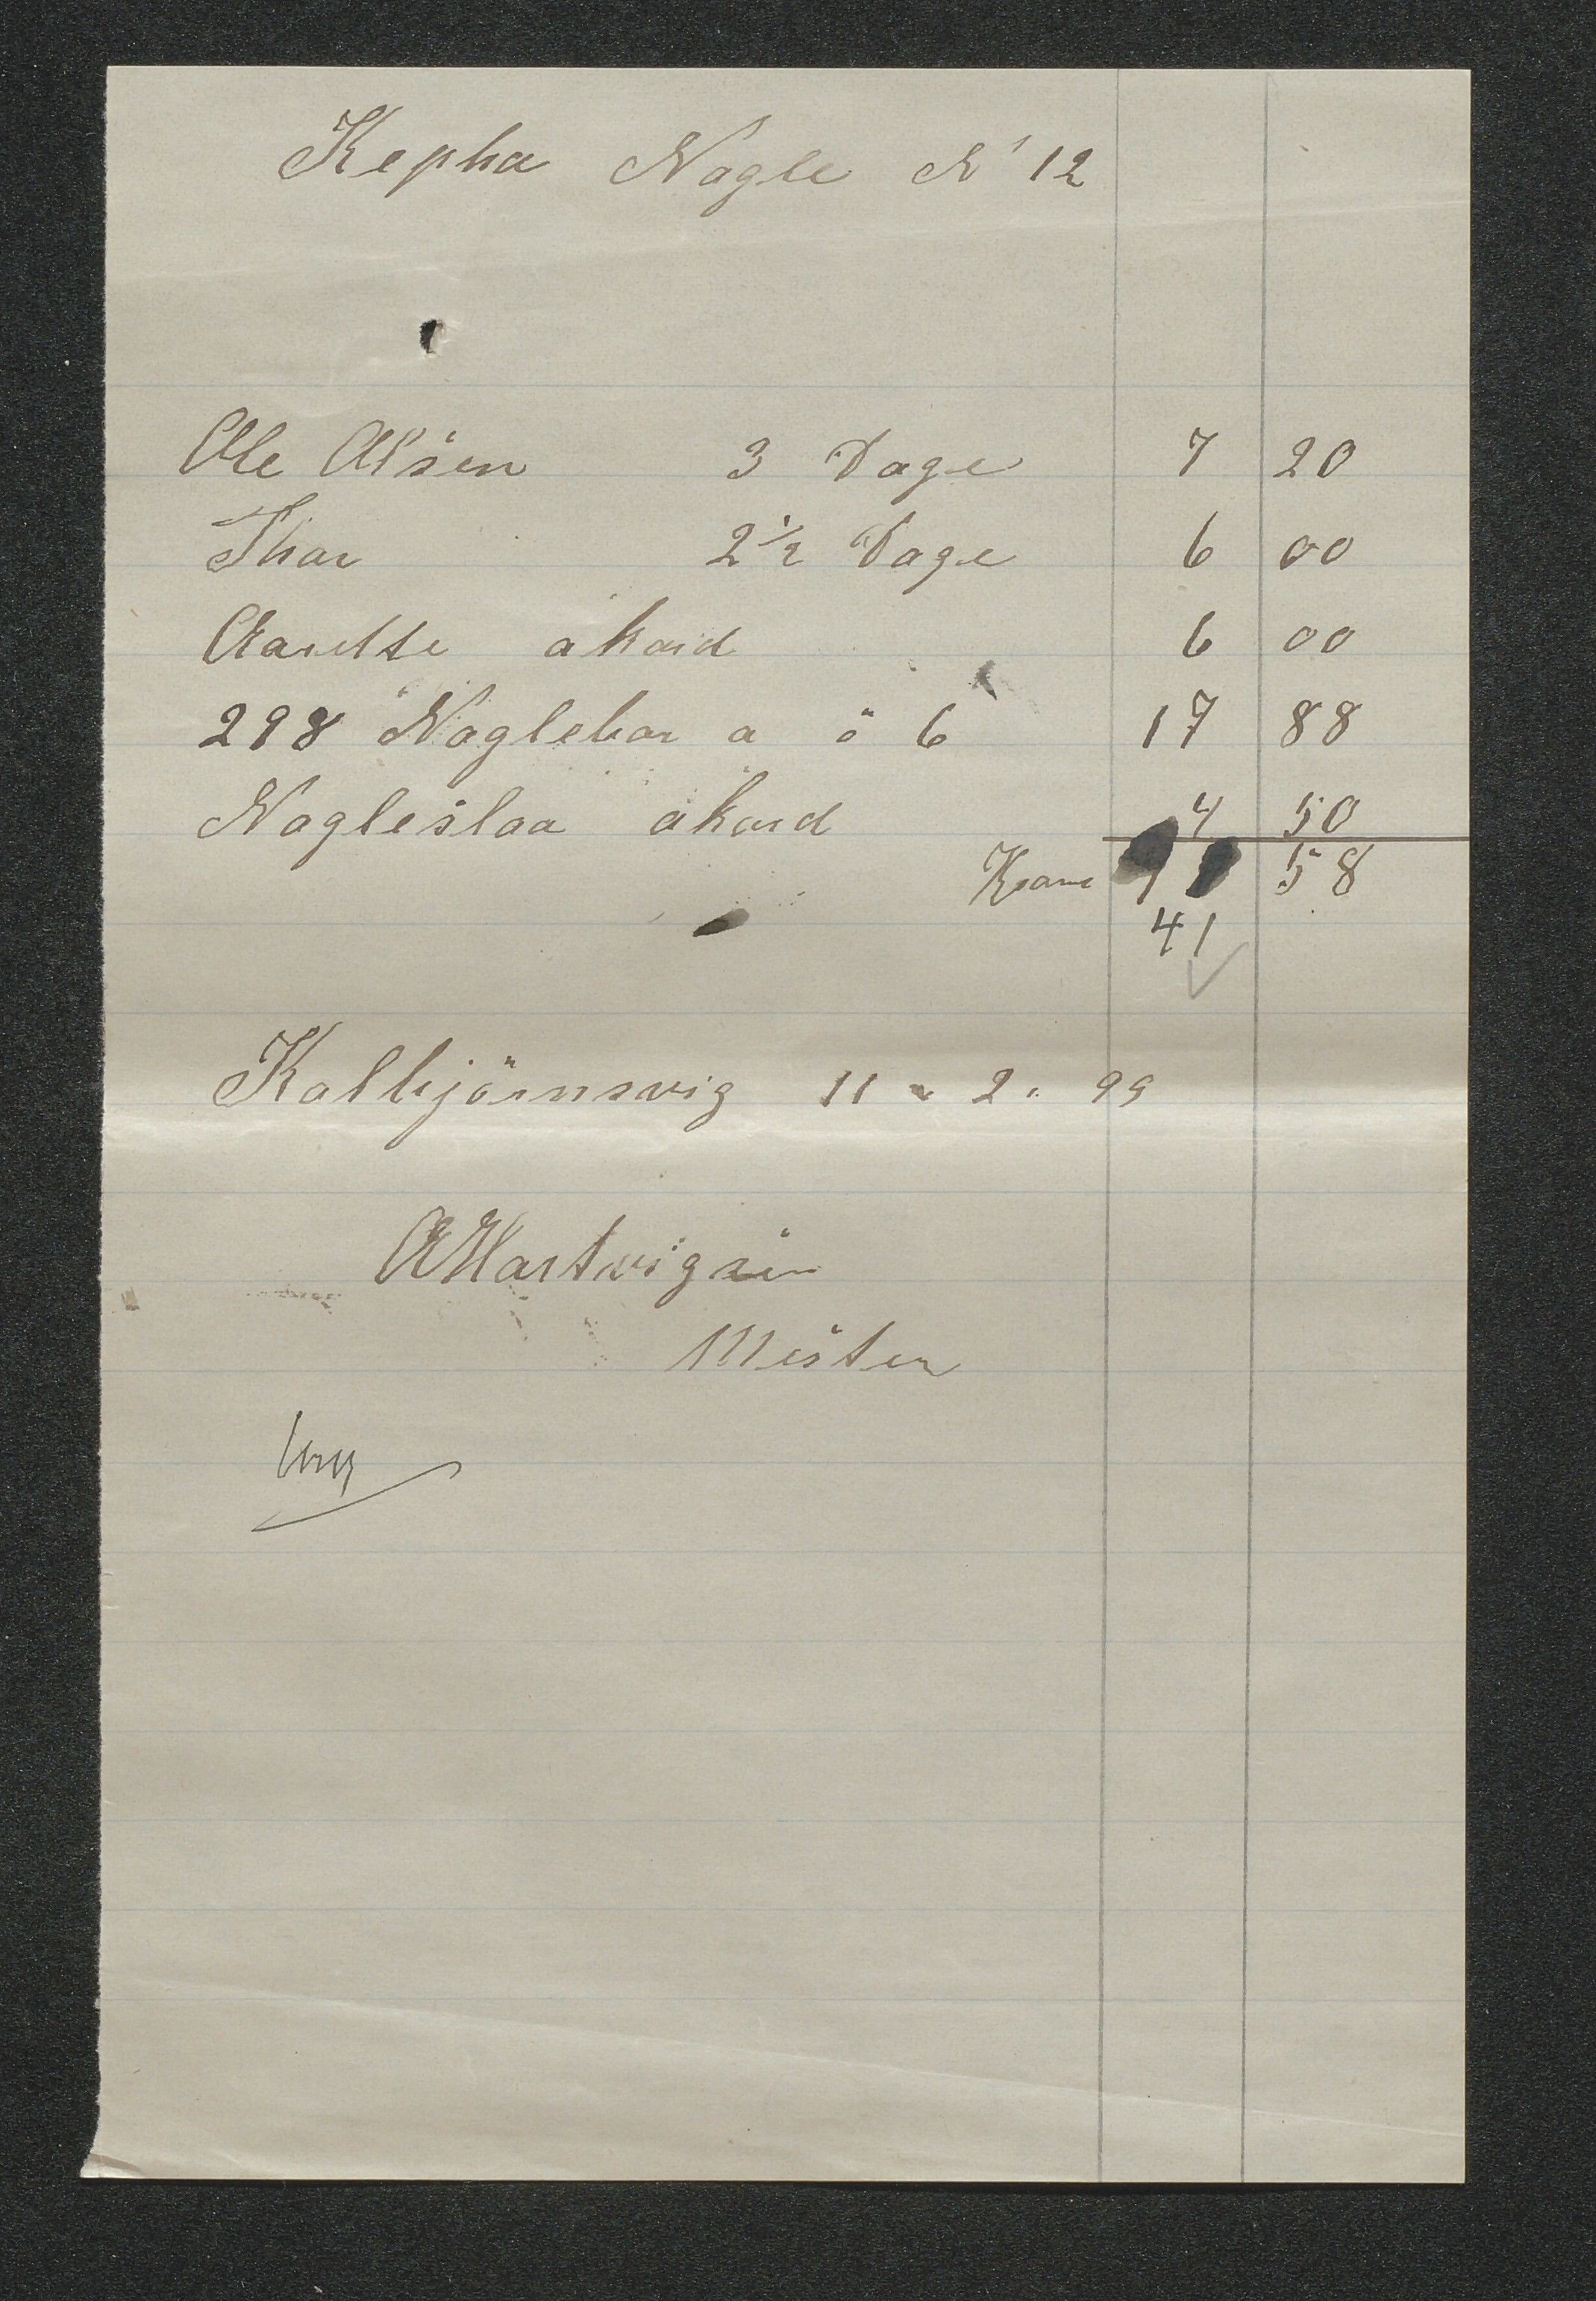 Kepha Nagle N' 12
Ole Olsen 3 Dage 7 20
Thor 2 1/2 Dage 6 00
akord 6 00
298 Naglebor a ö 6 17 88
Nagleslaa akord 4 50
Krone 58
41
Kolbjörnsvig 11 " 2 " 99
A Hartvigsen
Mester